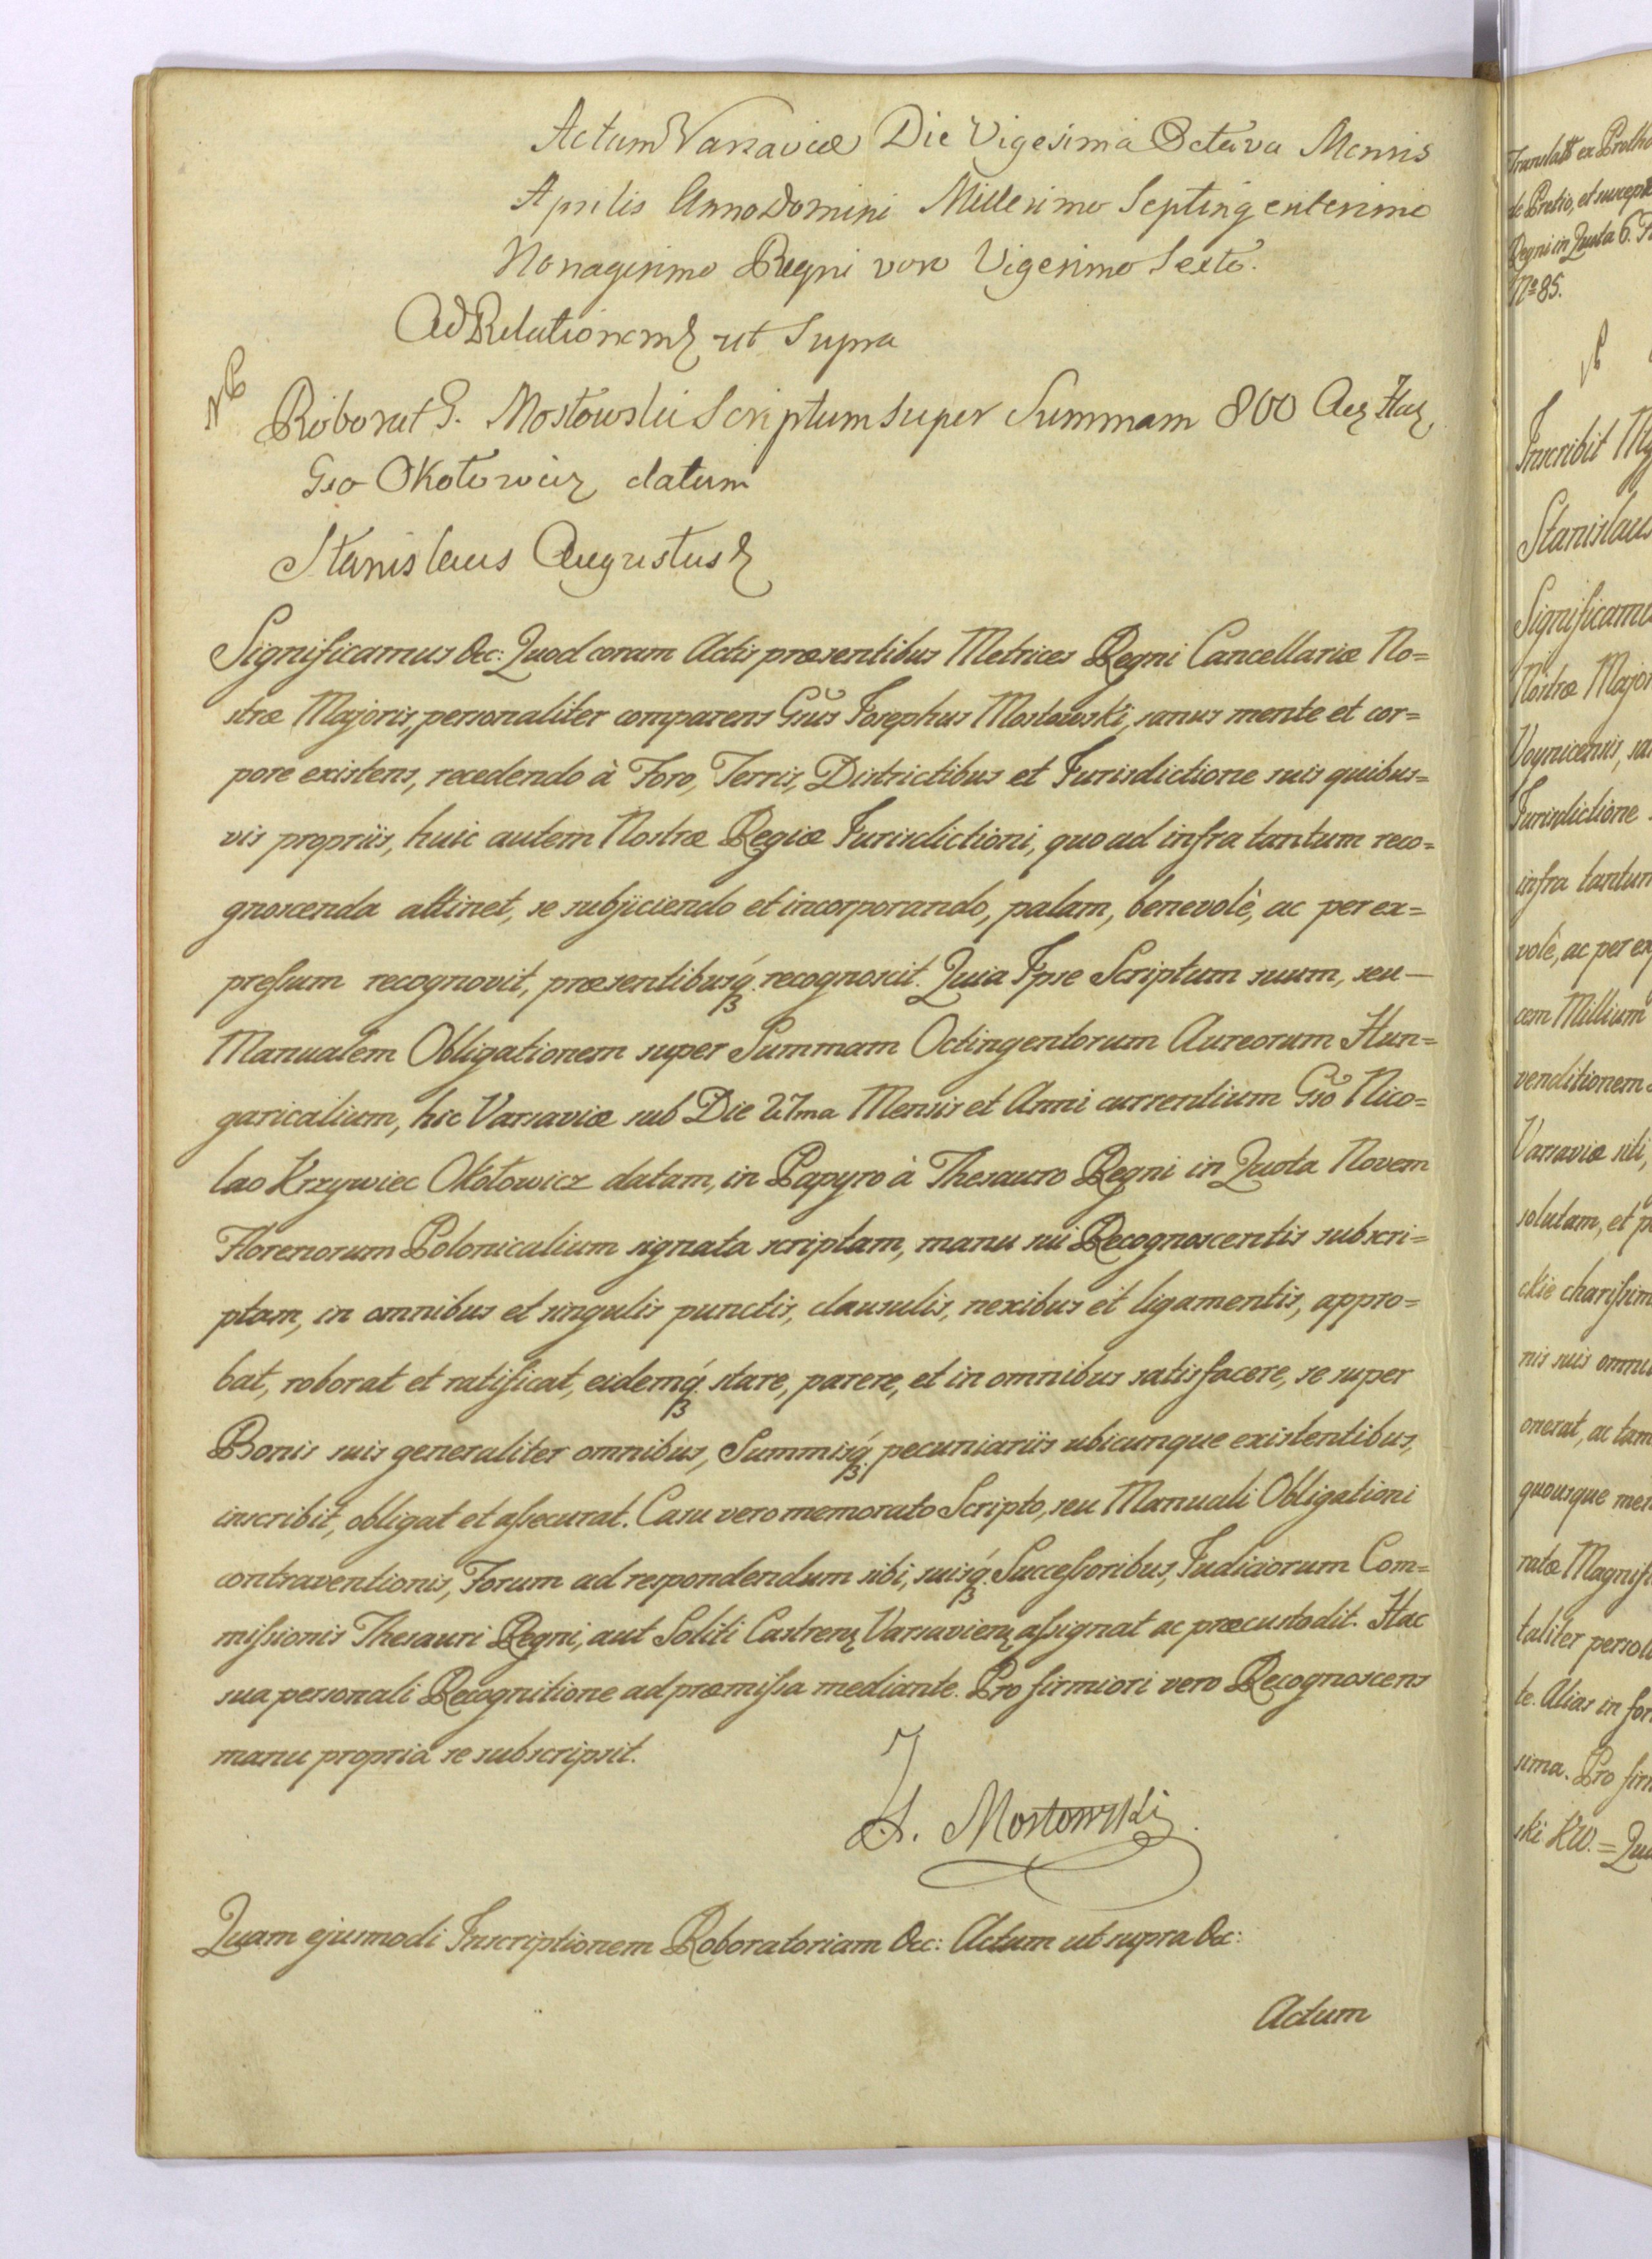 Actum Varsaviæ Die Vigesima Octava Mensis
Aprilis Anno Domini Millesimo Septingentesimo
Nonagesimo Regni vero Vigesimo Sexto.
Ad Relationem ut Supra
Roborat G. Mostowski Scriptum super Summam 800 Aur Hung
Gso Okołowicz datum
Stanislaus Augustus
Significamus &c: Quod coram Actis præsentibus Metrices Regni Cancellariæ No=
stræ Majoris, personaliter comparens Gsus Josephus Mostowski, sanus mente et cor=
pore existens, recedendo à Foro, Terris, Districtibus et Jurisdictione suis quibus=
vis propriis, huic autem Nostræ Regiæ Jurisdictioni, quo ad infra tantum reco=
gnoscenda attinet, se subjiciendo et incorporando, palam, benevolè, ac per ex=
pressum recognovit, præsentibusq́ recognoscit. Quia Ipse Scriptum suum, seu —
Manualem Obligationem super Summam Octingentorum Aureorum Hun=
garicalium, hic Varsaviæ sub Die 27ma Mensis et Anni currentium Gso Nico=
lao Krzywiec Okołowicz datam, in Papyro à Thesauro Regni in Quota Novem
Florenorum Polonicalium signata scriptam, manu sui Recognoscentis subscri=
ptam, in omnibus et singulis punctis, clausulis, nexibus et ligamentis, appro=
bat, roborat et ratificat, eidemq́ stare, parere, et in omnibus satisfacere, se super
Bonis suis generaliter omnibus, Summisq́ pecuniariis ubicunque existentibus,
inscribit, obligat et assecurat. Casu vero memorato Scripto, seu Manuali Obligationi
contraventionis, Forum ad respondendum sibi, suisq́ Successoribus, Judiciorum Com=
missionis Thesauri Regni, aut Soliti Castren Varsavien assignat ac præcustodit. Hac
sua personali Recognitione ad præmissa mediante. Pro firmiori vero Recognoscens
manu propria se subscripsit.
J. Mostowski
Quam ejusmodi Inscriptionem Roboratoriam &c: Actum ut supra &c:
Actum
de Pretio, et
Regni in Quota 6.
Nº 85.
Inscribit
Stanislaus
Significamus
Nostræ Major
Jurisdictione
infra tantum
volè, ac per ex
cem Millium
venditionem
Varsaviæ siti,
solutam, et
nis suis
onerat, ac tam
quousque
ratæ
taliter
te. Alias in for
sima. Pro
ski KW. =